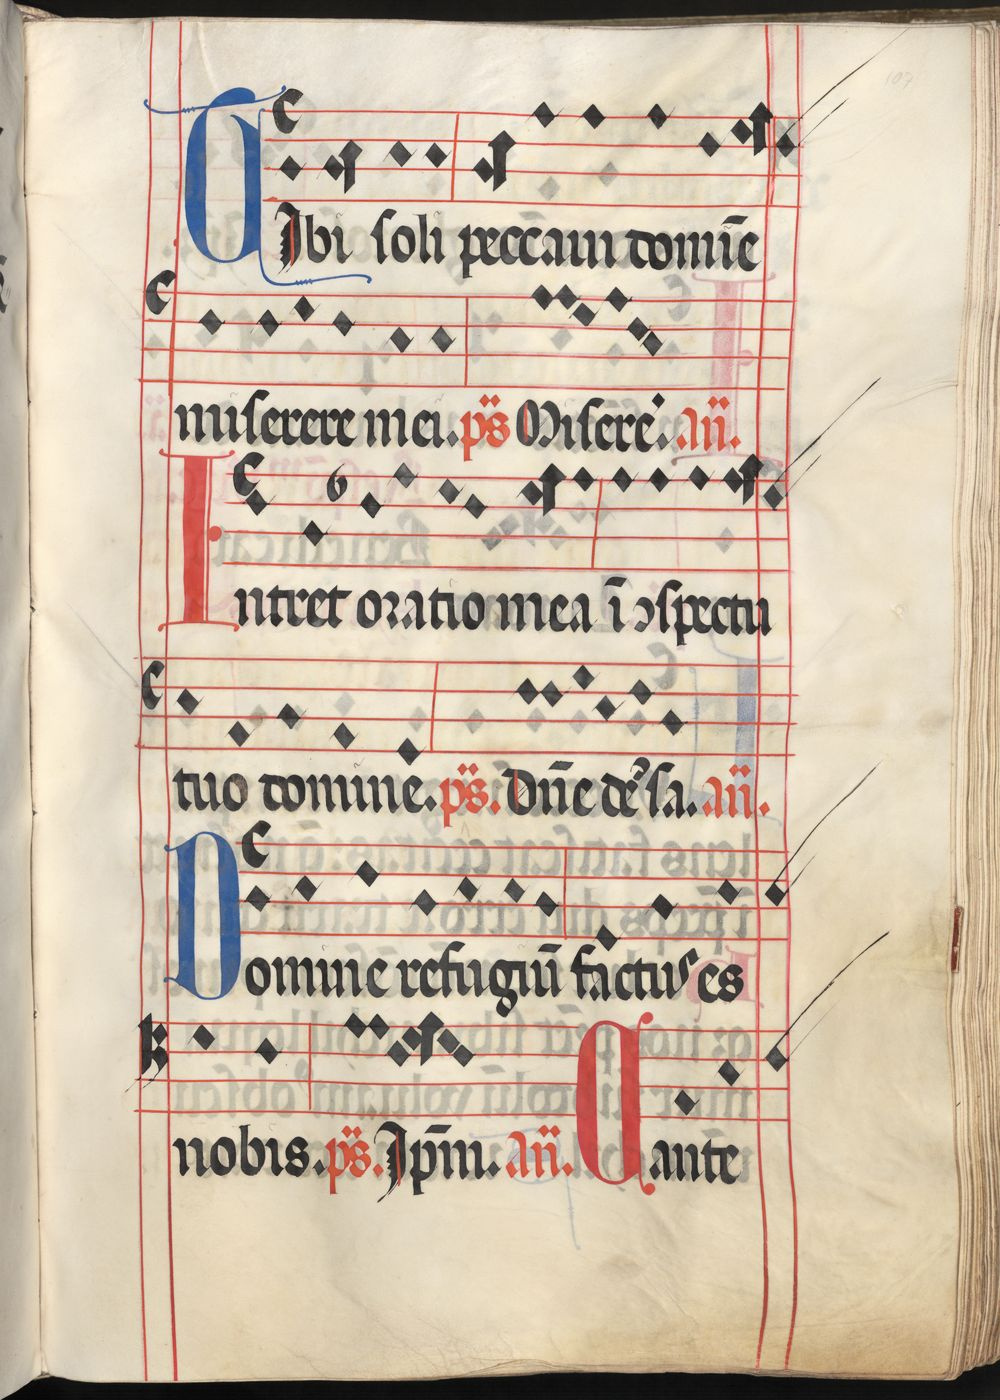 107
TIbi soli peccaui domīe
miserere mei. p̄s Miserē. an̄.
Intret oratio mea ī ↄspectu
tuo domine. p̄s. Dn̄e dē sa. an̄.
Domine refugiū factus es
nobis. p̄s. Ip̄m. an̄. Cante